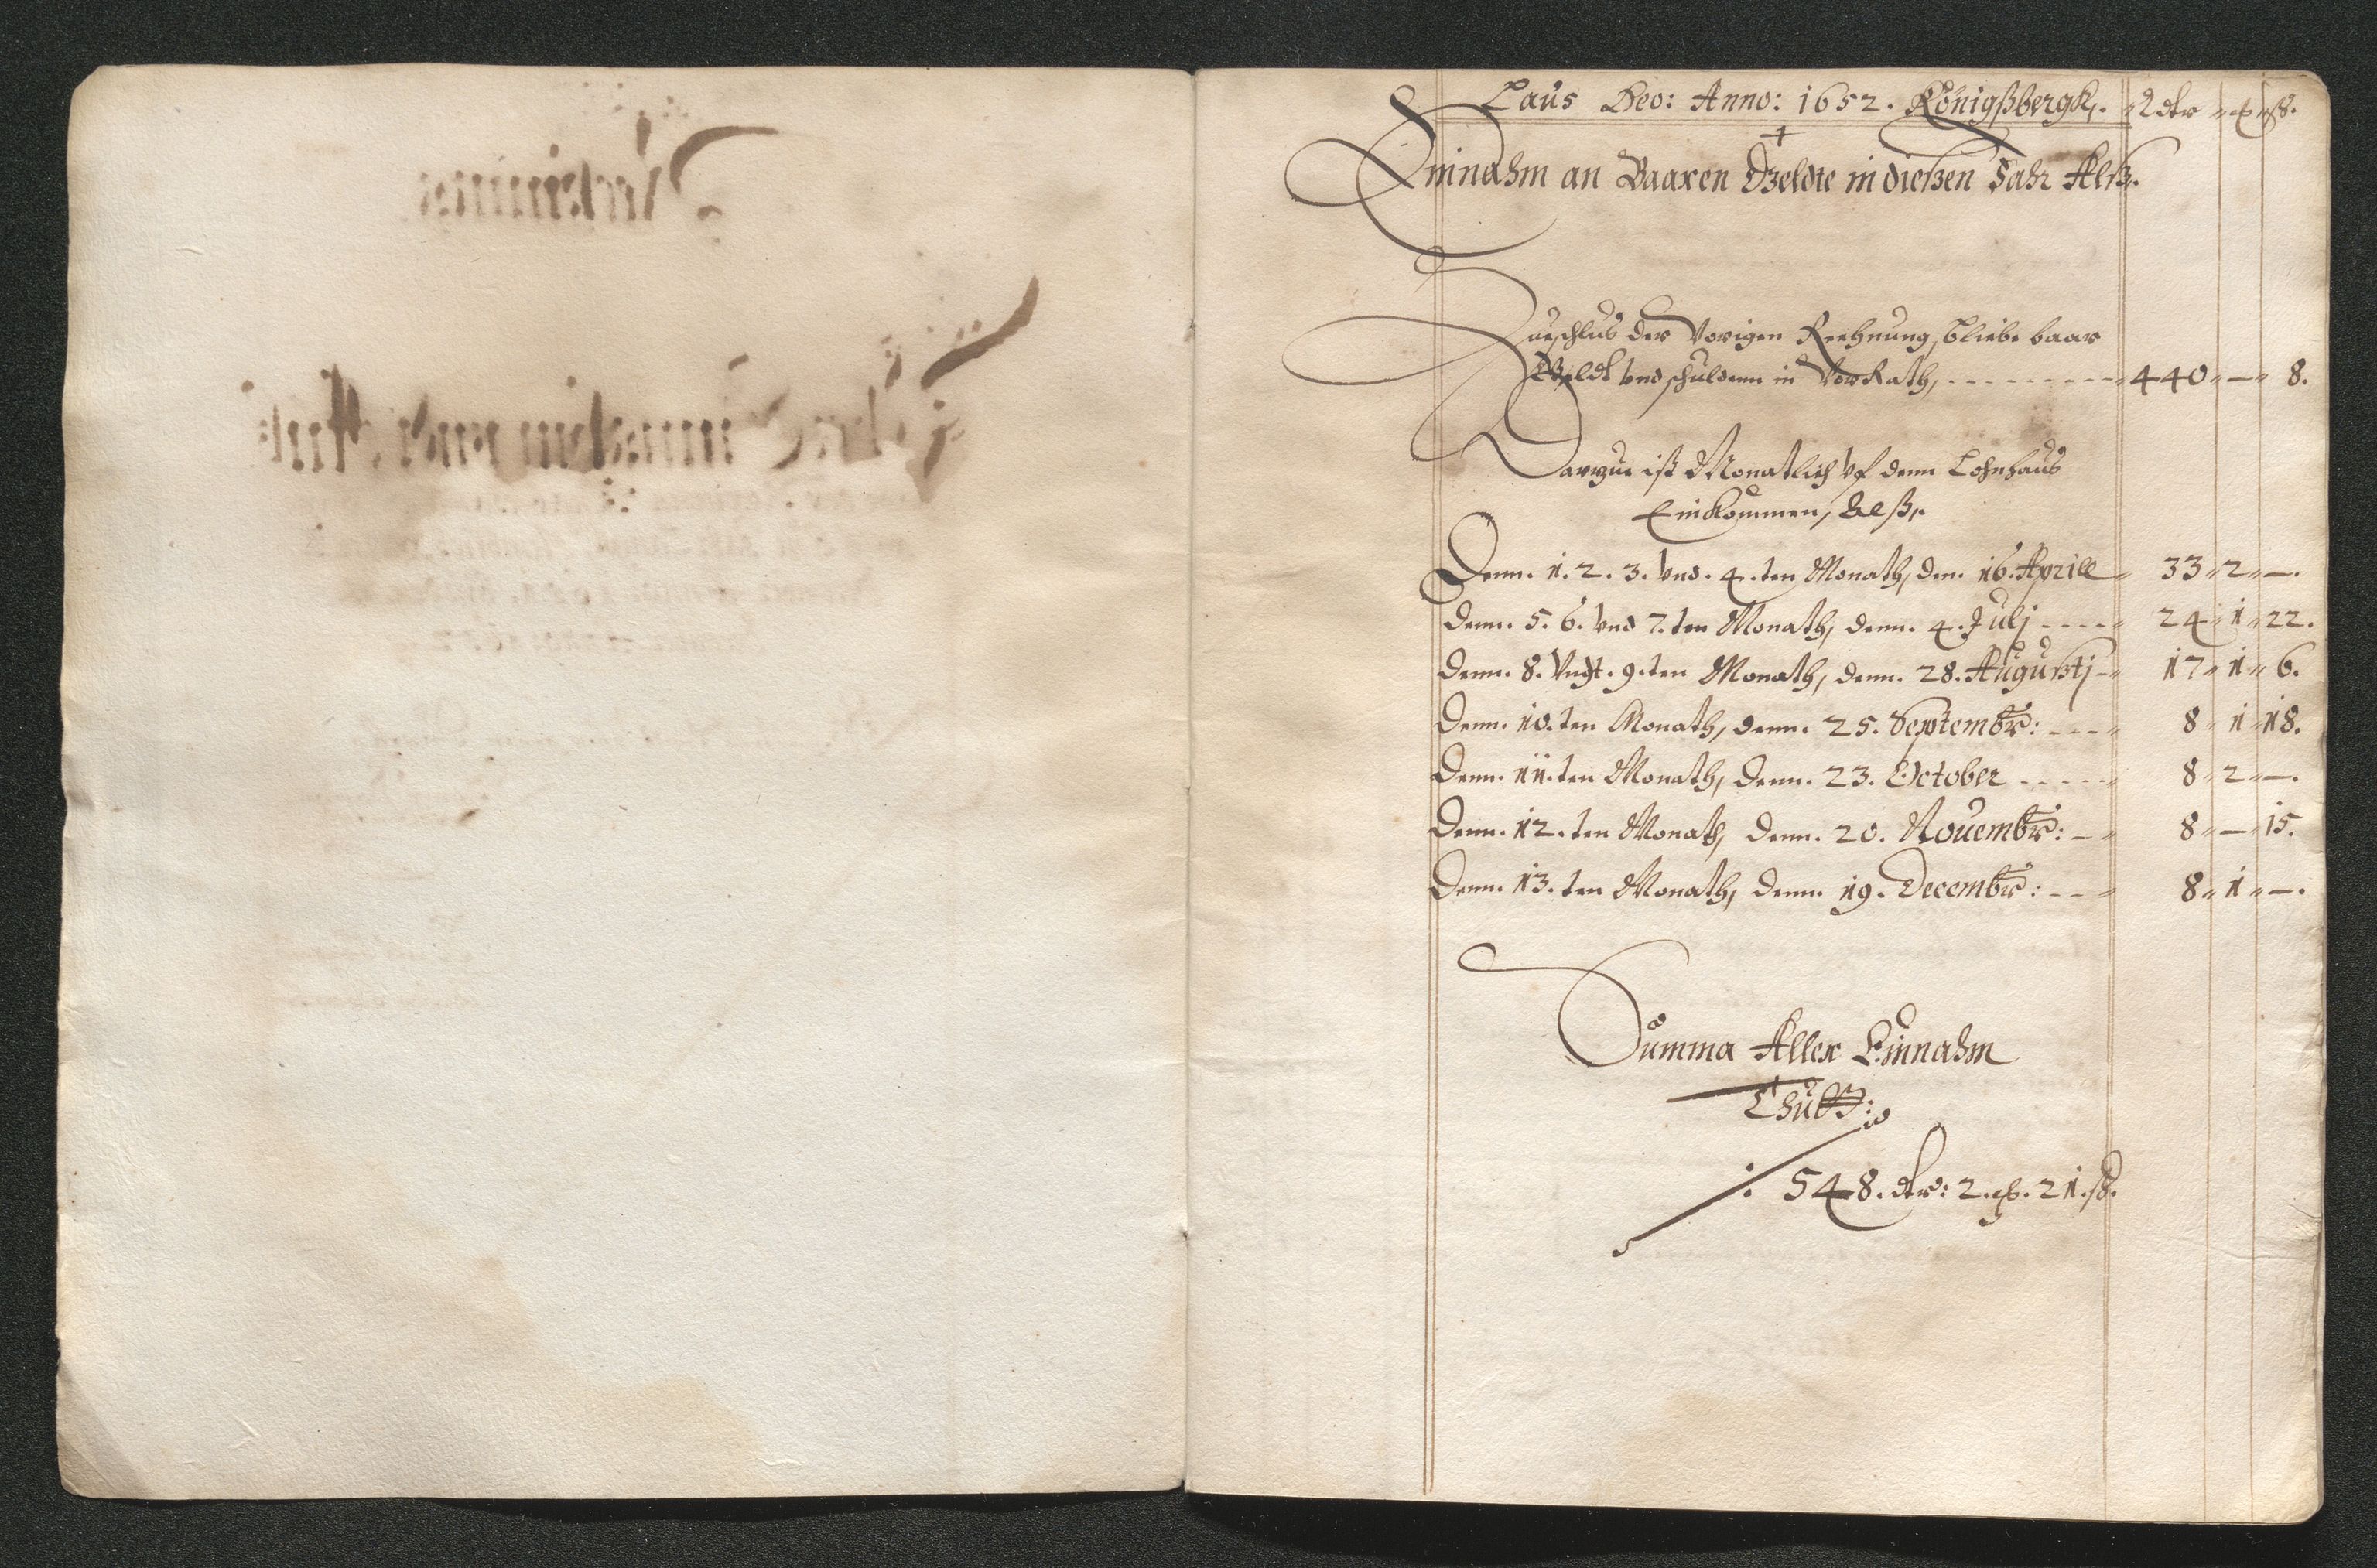 Laus Deo: Anno: 1652. Königßbergk. Rdlr ß.
Einnahm an Baaren Geldte in dießen Jahr Alß.
Zueschlus der Vorigen Rechnung, bliebe baar
Geldt vnd schulden in Vorrath, - - - - - - - - 440 — 8.
Darzue ist Monatlich vf dem Zechhaus
Einkommen, Alß,
Denn. 1. 2. 3. vnd. 4.ten Monath, den. 16. Aprill 33 2 —.
Denn. 5. 6. vnd 7.ten Monath, denn. 4. Julj - - - - 24 1 22.
Denn. 8. Vndt. 9.ten Monath, denn. 28. Augustj - 17 1 6.
Denn. 10.ten Monath, denn. 25. Septembr: - - - 8 1 18.
Denn. 11.ten Monath, Denn. 23. October - - - - 8 2 —.
Denn. 12.ten Monath, Denn. 20. Nouembr: - 8 — 15.
Denn. 13.ten Monath, Denn. 19. Decembr: - - - 8 1 —.
Summa Aller Einnahm
Thutt:
548. dlr: 2. 21. ß.